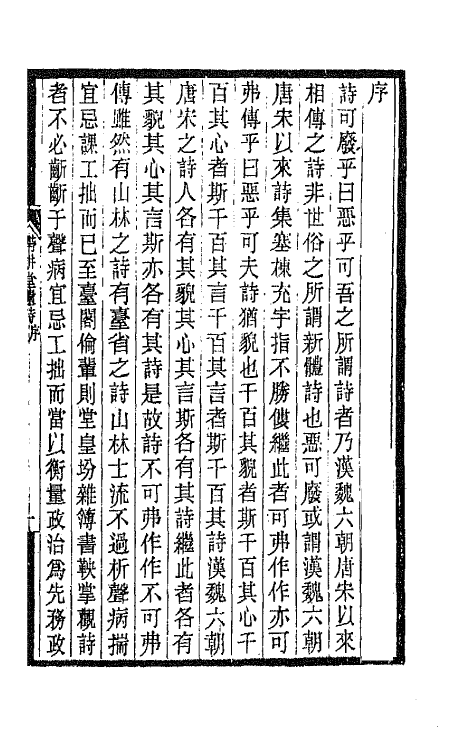 序
詩可廢乎曰惡乎可吾之所謂詩者乃漢魏六朝唐宋以來
相傳之詩非世俗之所謂新體詩也惡可廢或謂漢魏六朝
唐宋以來詩集塞棟充宇指不勝僂繼此者可弗作作亦可
弗傳乎曰惡乎可夫詩猶貌也千百其貌者斯千百其心千
百其心者斯千百其言千百其言者斯千百其詩漢魏六朝
唐宋之詩人各有其貌其心其言斯各有其詩繼此者各有
其貌其心其言斯亦各有其詩是故詩不可弗作作不可弗
傳雖然有山林之詩有臺省之詩山林士流不過析聲病揣
宜忌課工拙而已至臺閣倫輩則堂皇坋雜簿書鞅掌觀詩
者不必齗齗于聲病宜忌工拙而當以衡量政治爲先務政